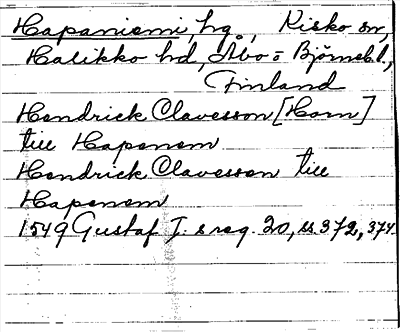 Hapaniemi, hg, Kisko sn,
Halikko hd, Åbo = Björneb. l.,
Finland
Hendrick Clavesson [Horn]
till Hapenem
Hendrick Clavesson till
Hapenem
1549 Gustaf I:s reg. 20, ss 372, 374